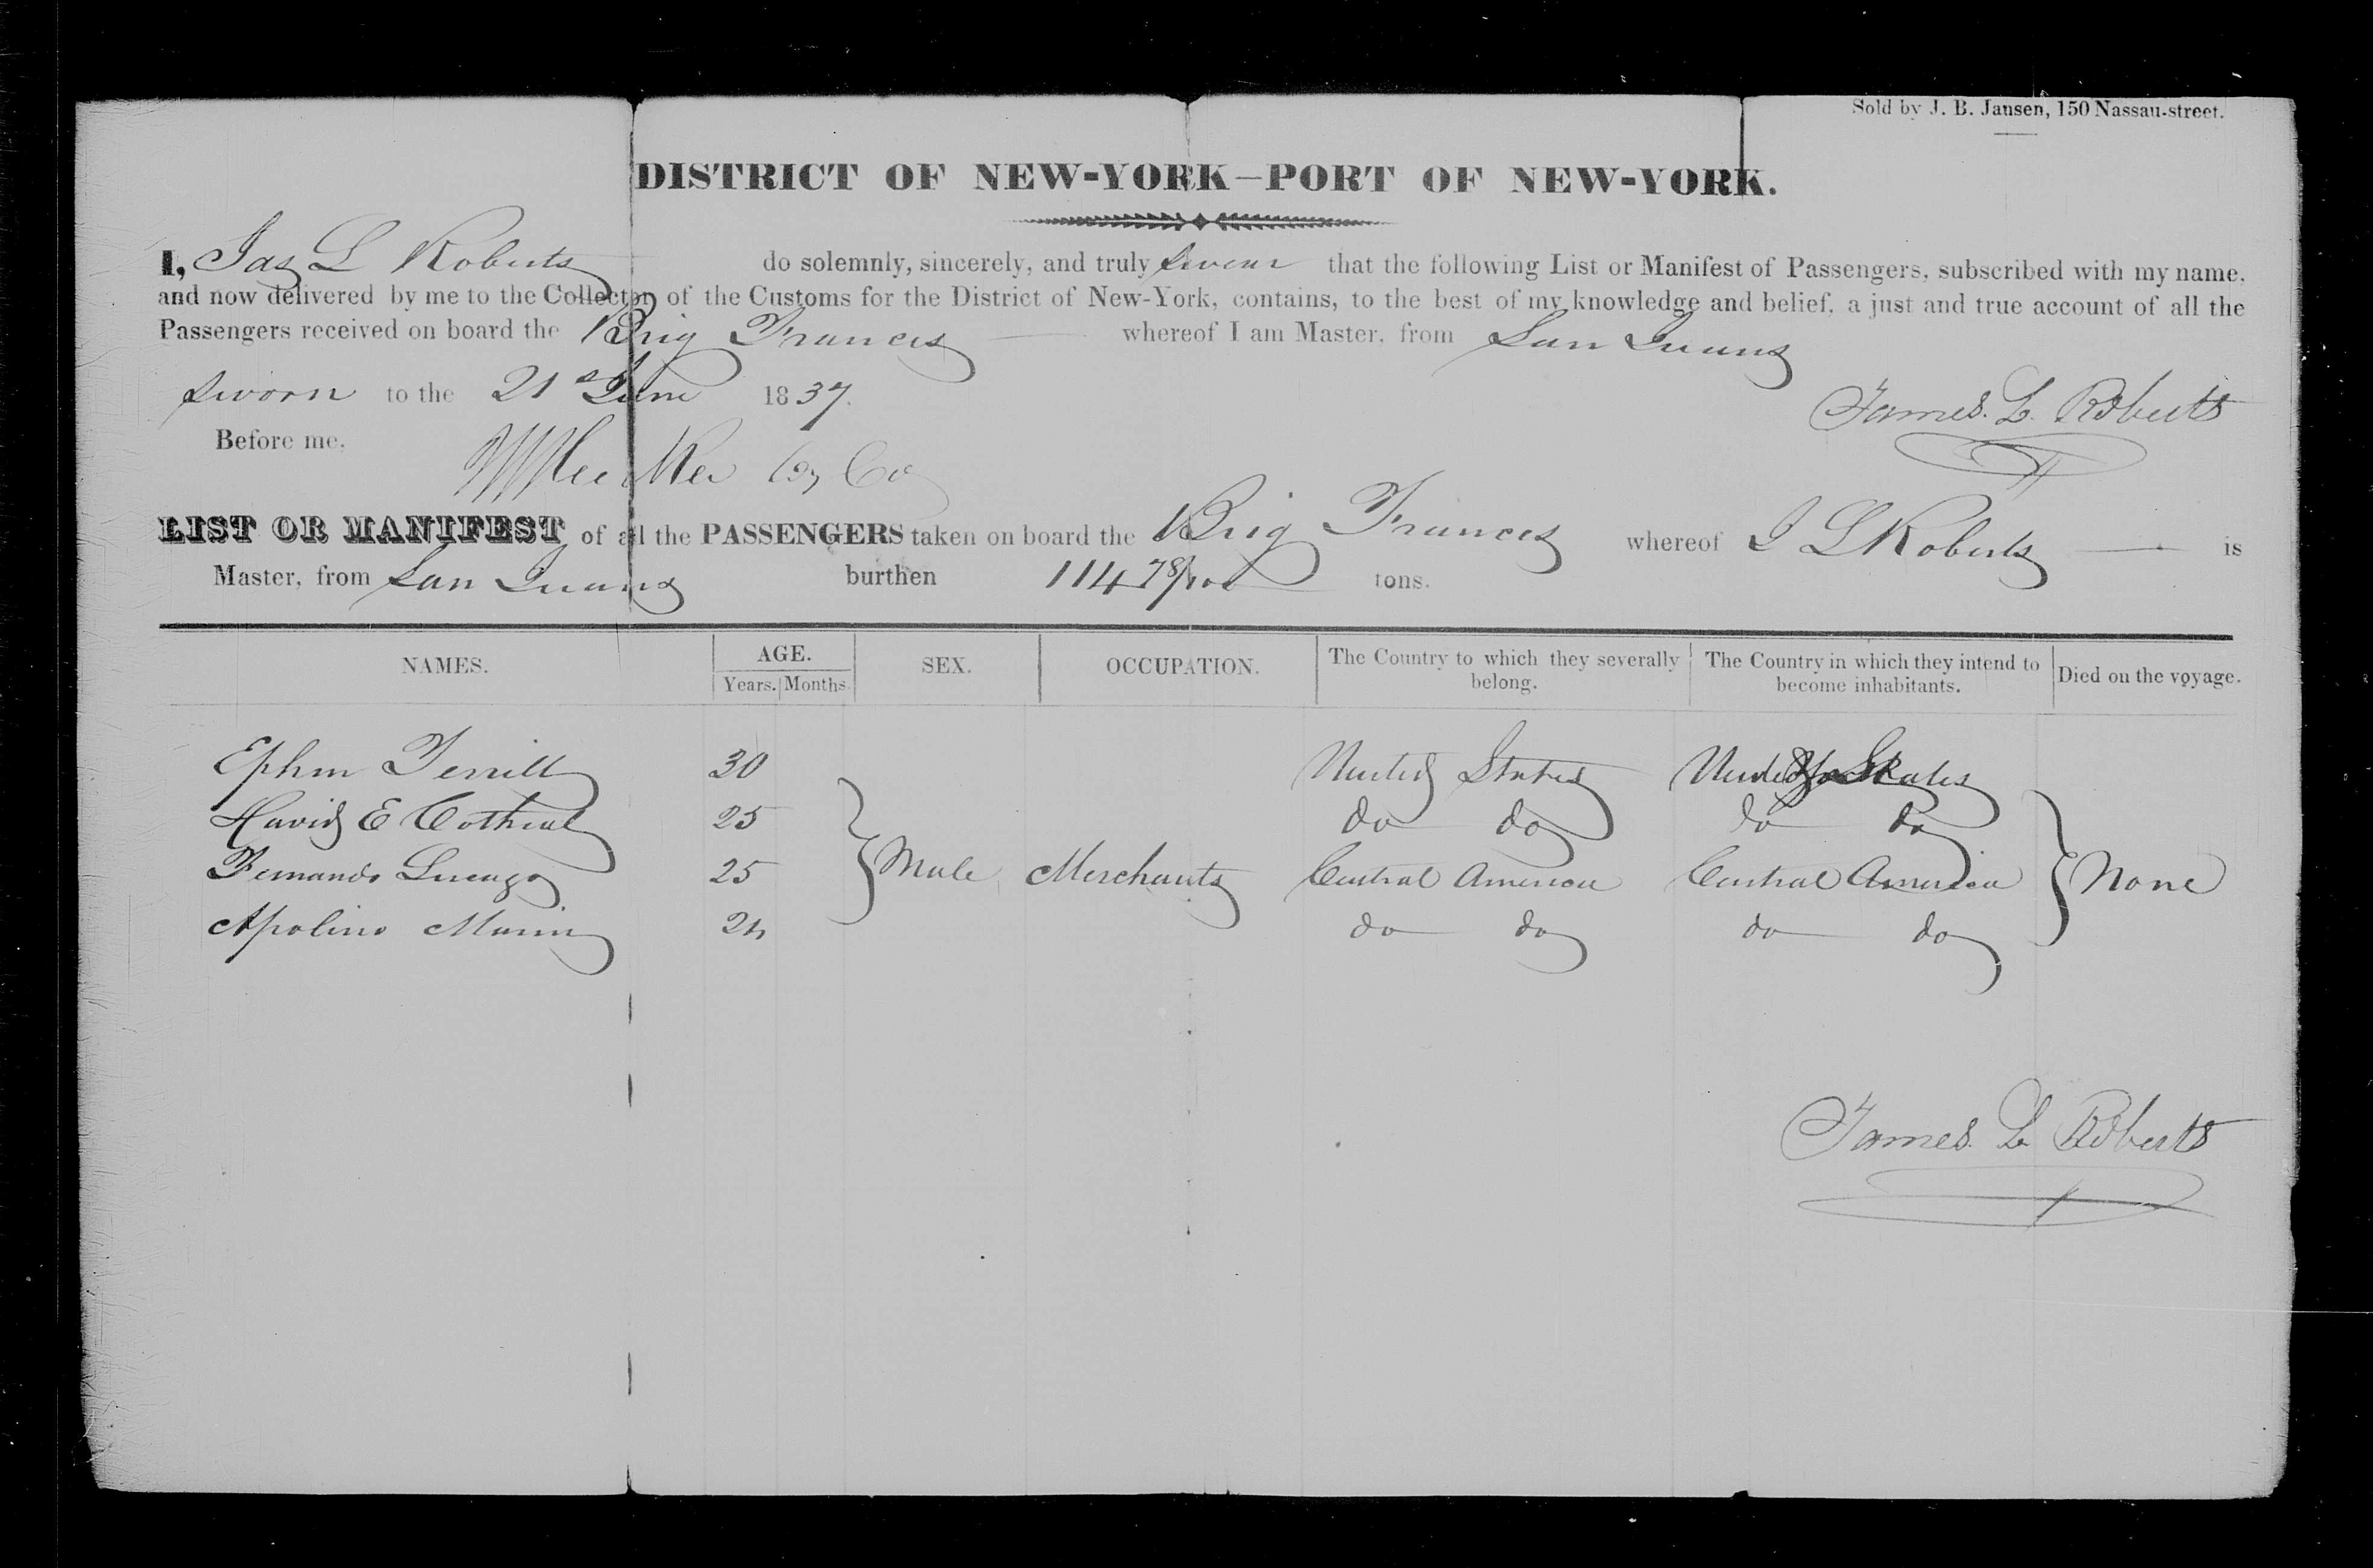 Sold by J. B. Jansen, 150 Nassau-street.
DISTRICT OF NEW-YORK—PORT OF NEW-YORK.
I, Jas L Roberts do solemnly, sincerely, and truly swear that the following List or Manifest of Passengers, subscribed with my name,
and now delivered by me to the Collector of the Customs for the District of New-York, contains, to the best of my knowledge and belief, a just and true account of all the
Passengers received on board the Brig Frances whereof I am Master, from San Juans
sworn to the 21st June 1837.
James. L. Roberts
Before me,
LIST OR MANIFEST of all the PASSENGERS taken on board the Brig Frances whereof J L Roberts is
Master, from San Juans burthen 114 78/100 tons.
NAMES. AGE. Years. Months. SEX. OCCUPATION. The Country to which they severally belong. The Country in which they intend to become inhabitants. Died on the voyage.
Ephm Terrill 30 United States United States
David E Cotheal 25 do do do do
Fernando 25 Male Merchants Central America Central America None
Apolino Marin 24 do do do do
James. L Roberts